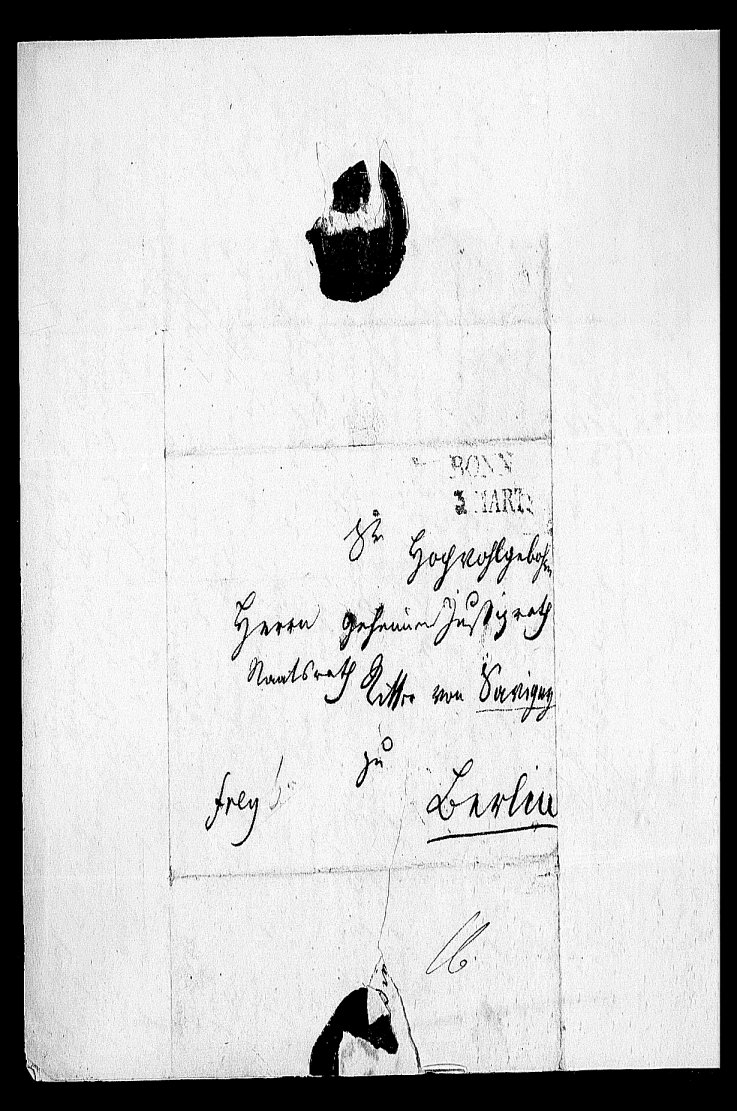 BONN
3 MART
Sr
Hochwohlgebohrn
Herrn geheimen Justizrath
Staatsrath Ritter von Savigny
zu
frey
Berlin